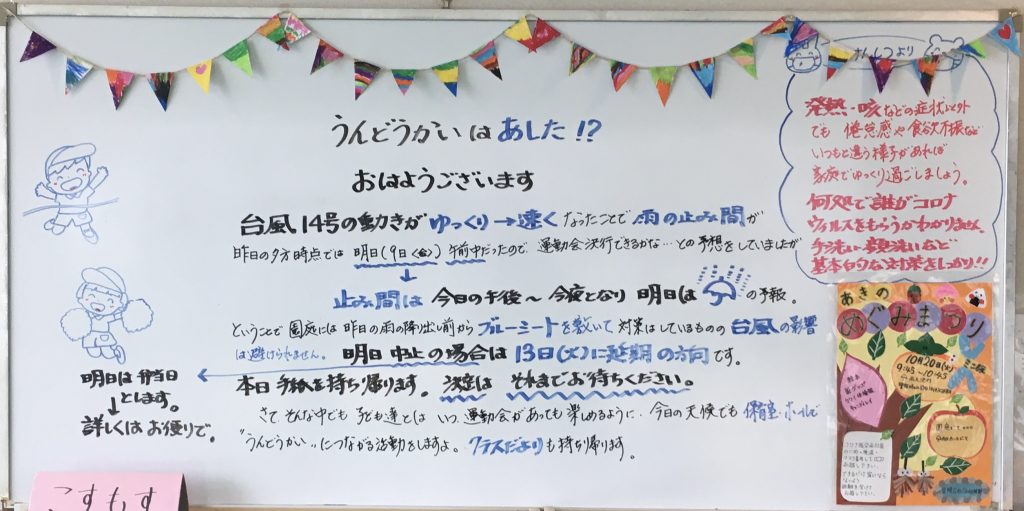 うんどうかいは あした!?
おはようございます
台風14号の動きが ゆっくり→速く なったことで 雨の止み間が
昨日の夕方時点では 明日(9日<金>) 午前中だったので、運動会決行できるかな…との予想をしていましたが
↓
止み間は 今日の午後〜今夜となり 明日は の予報。
ということで 園庭には 昨日の雨の降り出し前から ブルーシートを敷いて 対策はしているものの 台風の影響
は避けられません。 明日 中止の場合は 13日(火)に延期の方向です。
本日 手紙を持ち帰ります。 決定は それまでお待ちください。
さて、そんな中でも 子ども達とは いつ 運動会があっても 楽しめるように、今日の天候でも 保育室・ホールで
"うんどうかい"につながる活動をしますよ。 クラスだよりも持ち帰ります。
明日は 弁当日
↓とします。
詳しくは お便りで。
こすもす
発熱・咳などの症状以外
でも 倦怠感や食欲不振など
いつもと違う様子があれば
家庭でゆっくり過ごしましょう。
何処で誰がコロナ
ウィルスをもらうかわかりません。
手洗い・顔洗いなど
基本的な対策をしっかり!!
あきの
めぐみまつり
ミニ版
10月20日(火)
9:45〜10:45